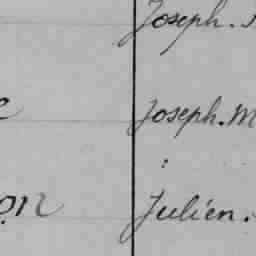 Joseph.
Joseph. M
on Julien.